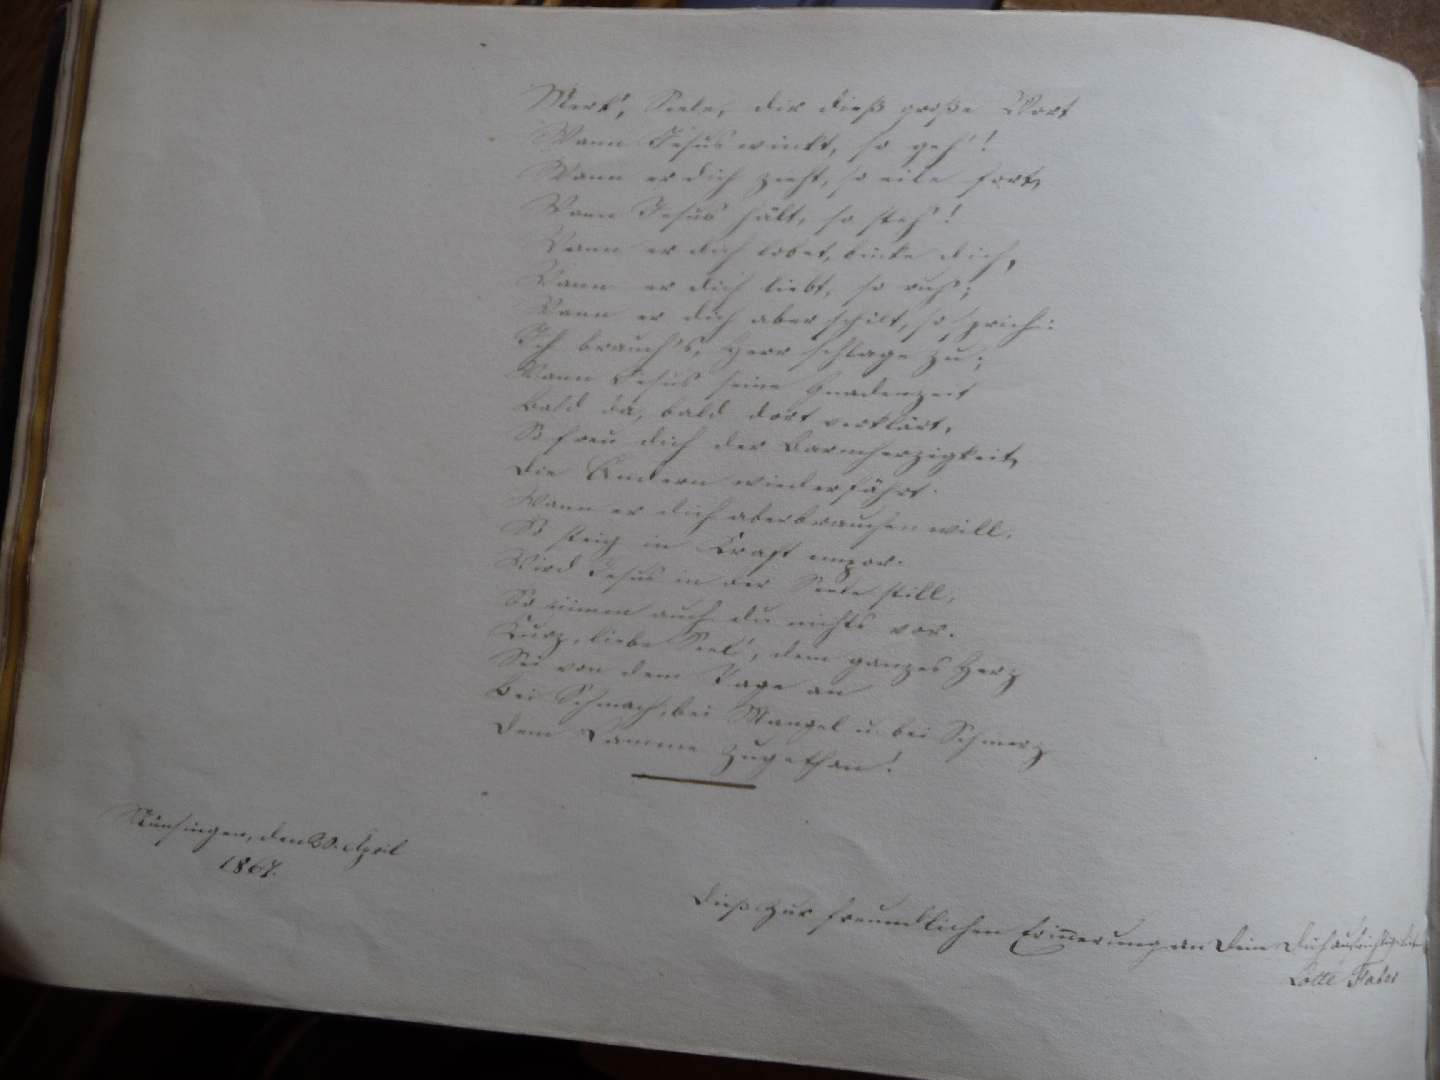 Merk', Seele, dir dieß große Wort
Wann Jesus winkt, so geh'!
Wann er dich zieht, so eile fort,
Wann Jesus hält, so steh'!
Wann er dich lobet, bücke dich,
Wann er dich liebt, so ruh';
Wann er dich aber schilt, so sprich:
Ich brauch's, Herr schlage zu;
Wann Jesus seine Gnadenzeit
Bald da, bald dort verklärt,
So freu dich der Barmherzigkeit,
Die Andern wiederfährt.
Wann er dich aber brauchen will,
So steig in Kraft empor.
Wird Jesus in der Seele still,
So nimm auch du nichts vor.
Kurz, liebe Seel', dein ganzes Herz
Sei von dem Tage an
Bei Schmach, bei Mangel u. bei Schmerz
Dem Lamme zugethan!
Münsingen, den 20. April
1867.
Dieß zur freundlichen Erinnerung an Deine Dich aufrichtig
Lotte Faber